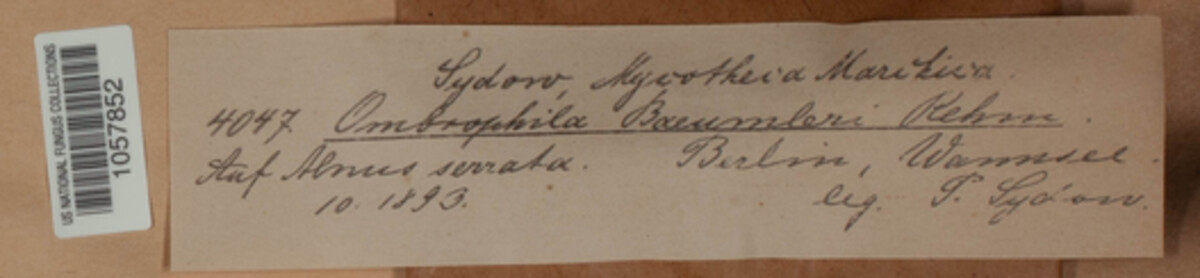 US NATIONAL FUNGUS COLLECTIONS
1057852
Sydow, Mycotheca Marchica.
4047 Ombrophila Baeumleri Rehm.
Auf Alnus serrata. Berlin, Wannsee.
10. 1893. leg. P. Sydow.